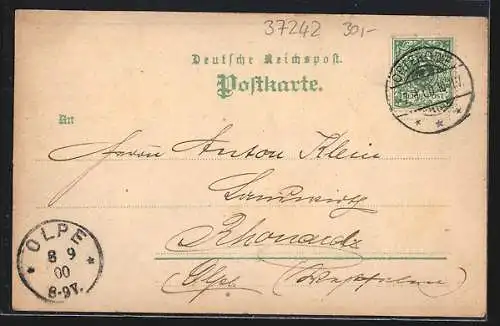 37242 30,-
Deutsche Reichspost.
Postkarte.
An
Herrn Anton Klein
Landwirth
Rhonard
Olpe (Westfalen)
OLPE
8 9
00
8-9V.